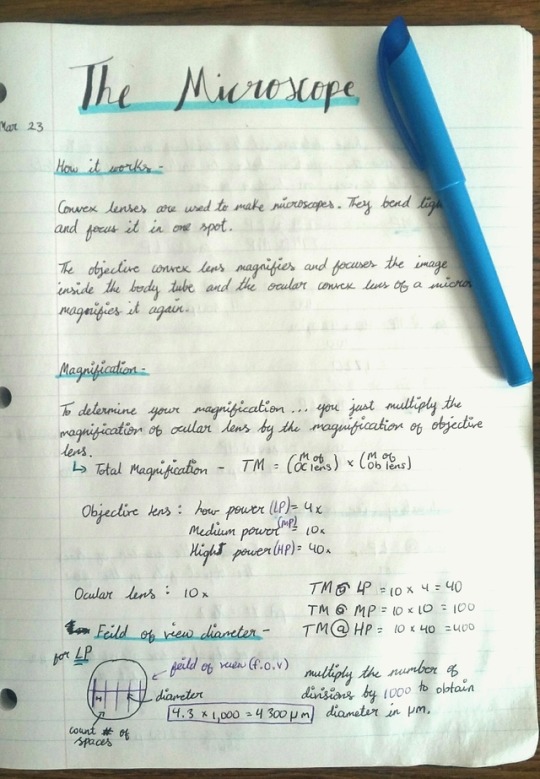 The Microscope
Mar 23
How it works -
Convex lenses are used to make microscopes. They bend
and focus it in one spot.
The objective convex lens magnifies and focuses the image
inside the body tube and the ocular convex lens of a
magnifies it again.
Magnification -
To determine your magnification... you just multiply the
magnification of ocular lens by the magnification of objective
lens.
↳ Total Magnification - TM = (M of Oc lens) x (M of Ob lens)
Objective lens : Low power (LP) = 4x
Medium power (MP) = 10x
Hight power (HP) = 40x
Ocular lens : 10x
TM @ LP = 10 x 4 = 40
TM @ MP = 10 x 10 = 100
TM @ HP = 10 x 40 = 400
Feild of view diameter -
for LP
feild of view (f.o.v)
diameter
count # of
spaces
4.3 x 1,000 = 4300 μm
multiply the number of
divisions by 1000 to obtain
diameter in μm.